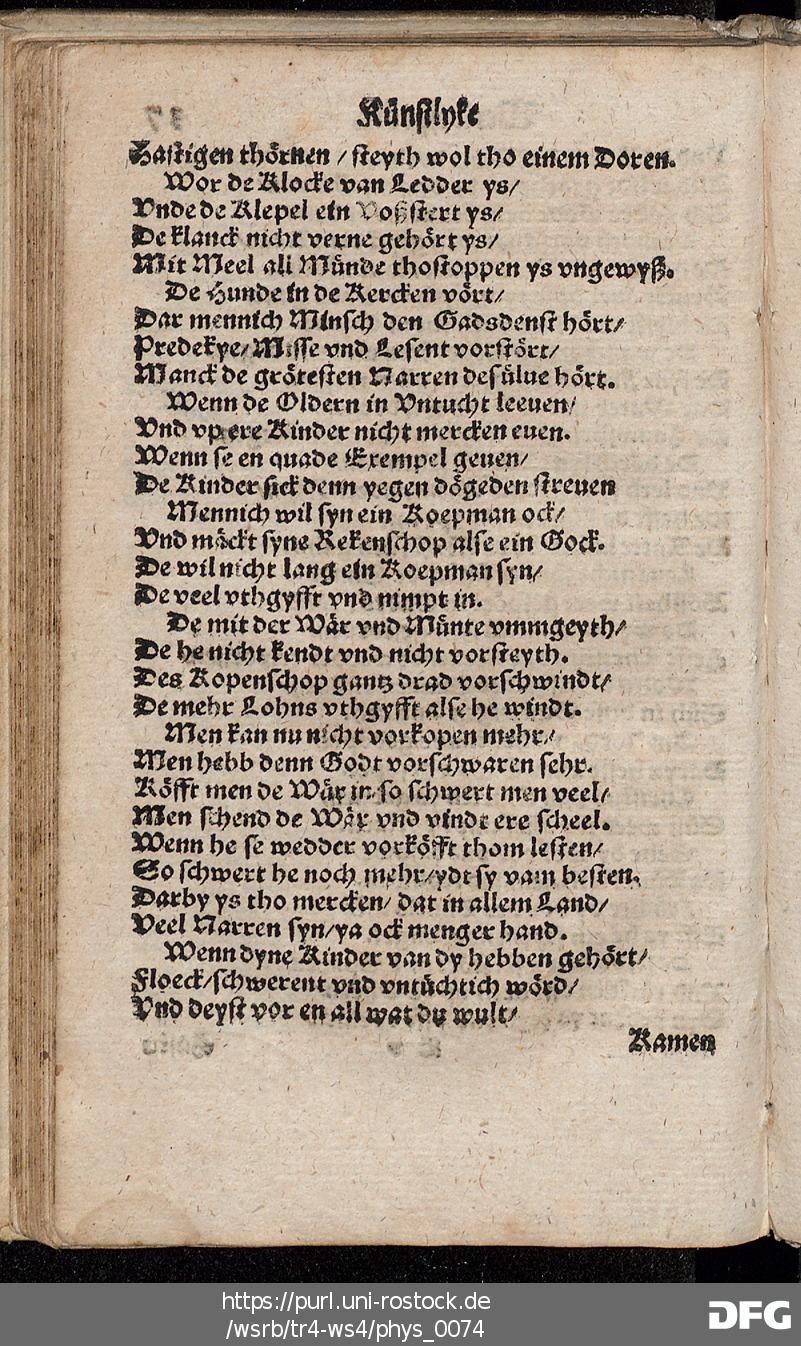 Künstlyke
Hastigen thörnen / steyth wol tho einem Doren.
Wor de Klocke van Ledder ys/
Vnde de Klepel ein Voßstert ys/
De klanck nicht verne gehört ys/
Mit Meel all Münde thostoppen ys vngewyß.
De Hunde in de Kercken vört/
Dar mennich Minsch den Gadsdenst hört/
Predekye/ Misse vnd Lesent vorstört/
Manck de grötesten Narren desülue hört.
Wenn de Oldern in Vntucht leeuen/
Vnd vp ere Kinder nicht mercken euen.
Wenn se en quade Exempel geuen/
De Kinder sick denn yegen dögeden streuen
Mennich wil syn ein Koepman ock/
Vnd mäckt syne Rekenschop alse ein Gock.
De wil nicht lang ein Koepman syn/
De veel vthgyfft vnd nimpt in.
De mit der Wär vnd Münte vmmgeyth/
De he nicht kendt vnd nicht vorsteyth.
Des Kopenschop gantz drad vorschwindt/
De mehr Lohns vthgyfft alse he windt.
Men kan nu nicht vorkopen mehr/
Men hebb denn Godt vorschwaren sehr.
Köfft men de Wär in/ so schwert men veel/
Men schend de Wär vnd vindt ere scheel.
Wenn he se wedder vorköfft thom lesten/
So schwert he noch mehr/ ydt sy vam besten.
Darby ys tho mercken/ dat in allem Land/
Veel Narren syn/ ya ock menger hand.
Wenn dyne Kinder van dy hebben gehört/
Floeck/ schwerent vnd vntüchtich wörd/
Vnd deyst vor en all wat du wult/
Kamen
https://purl.uni-rostock.de
/wsrb/tr4-ws4/phys_0074
DFG